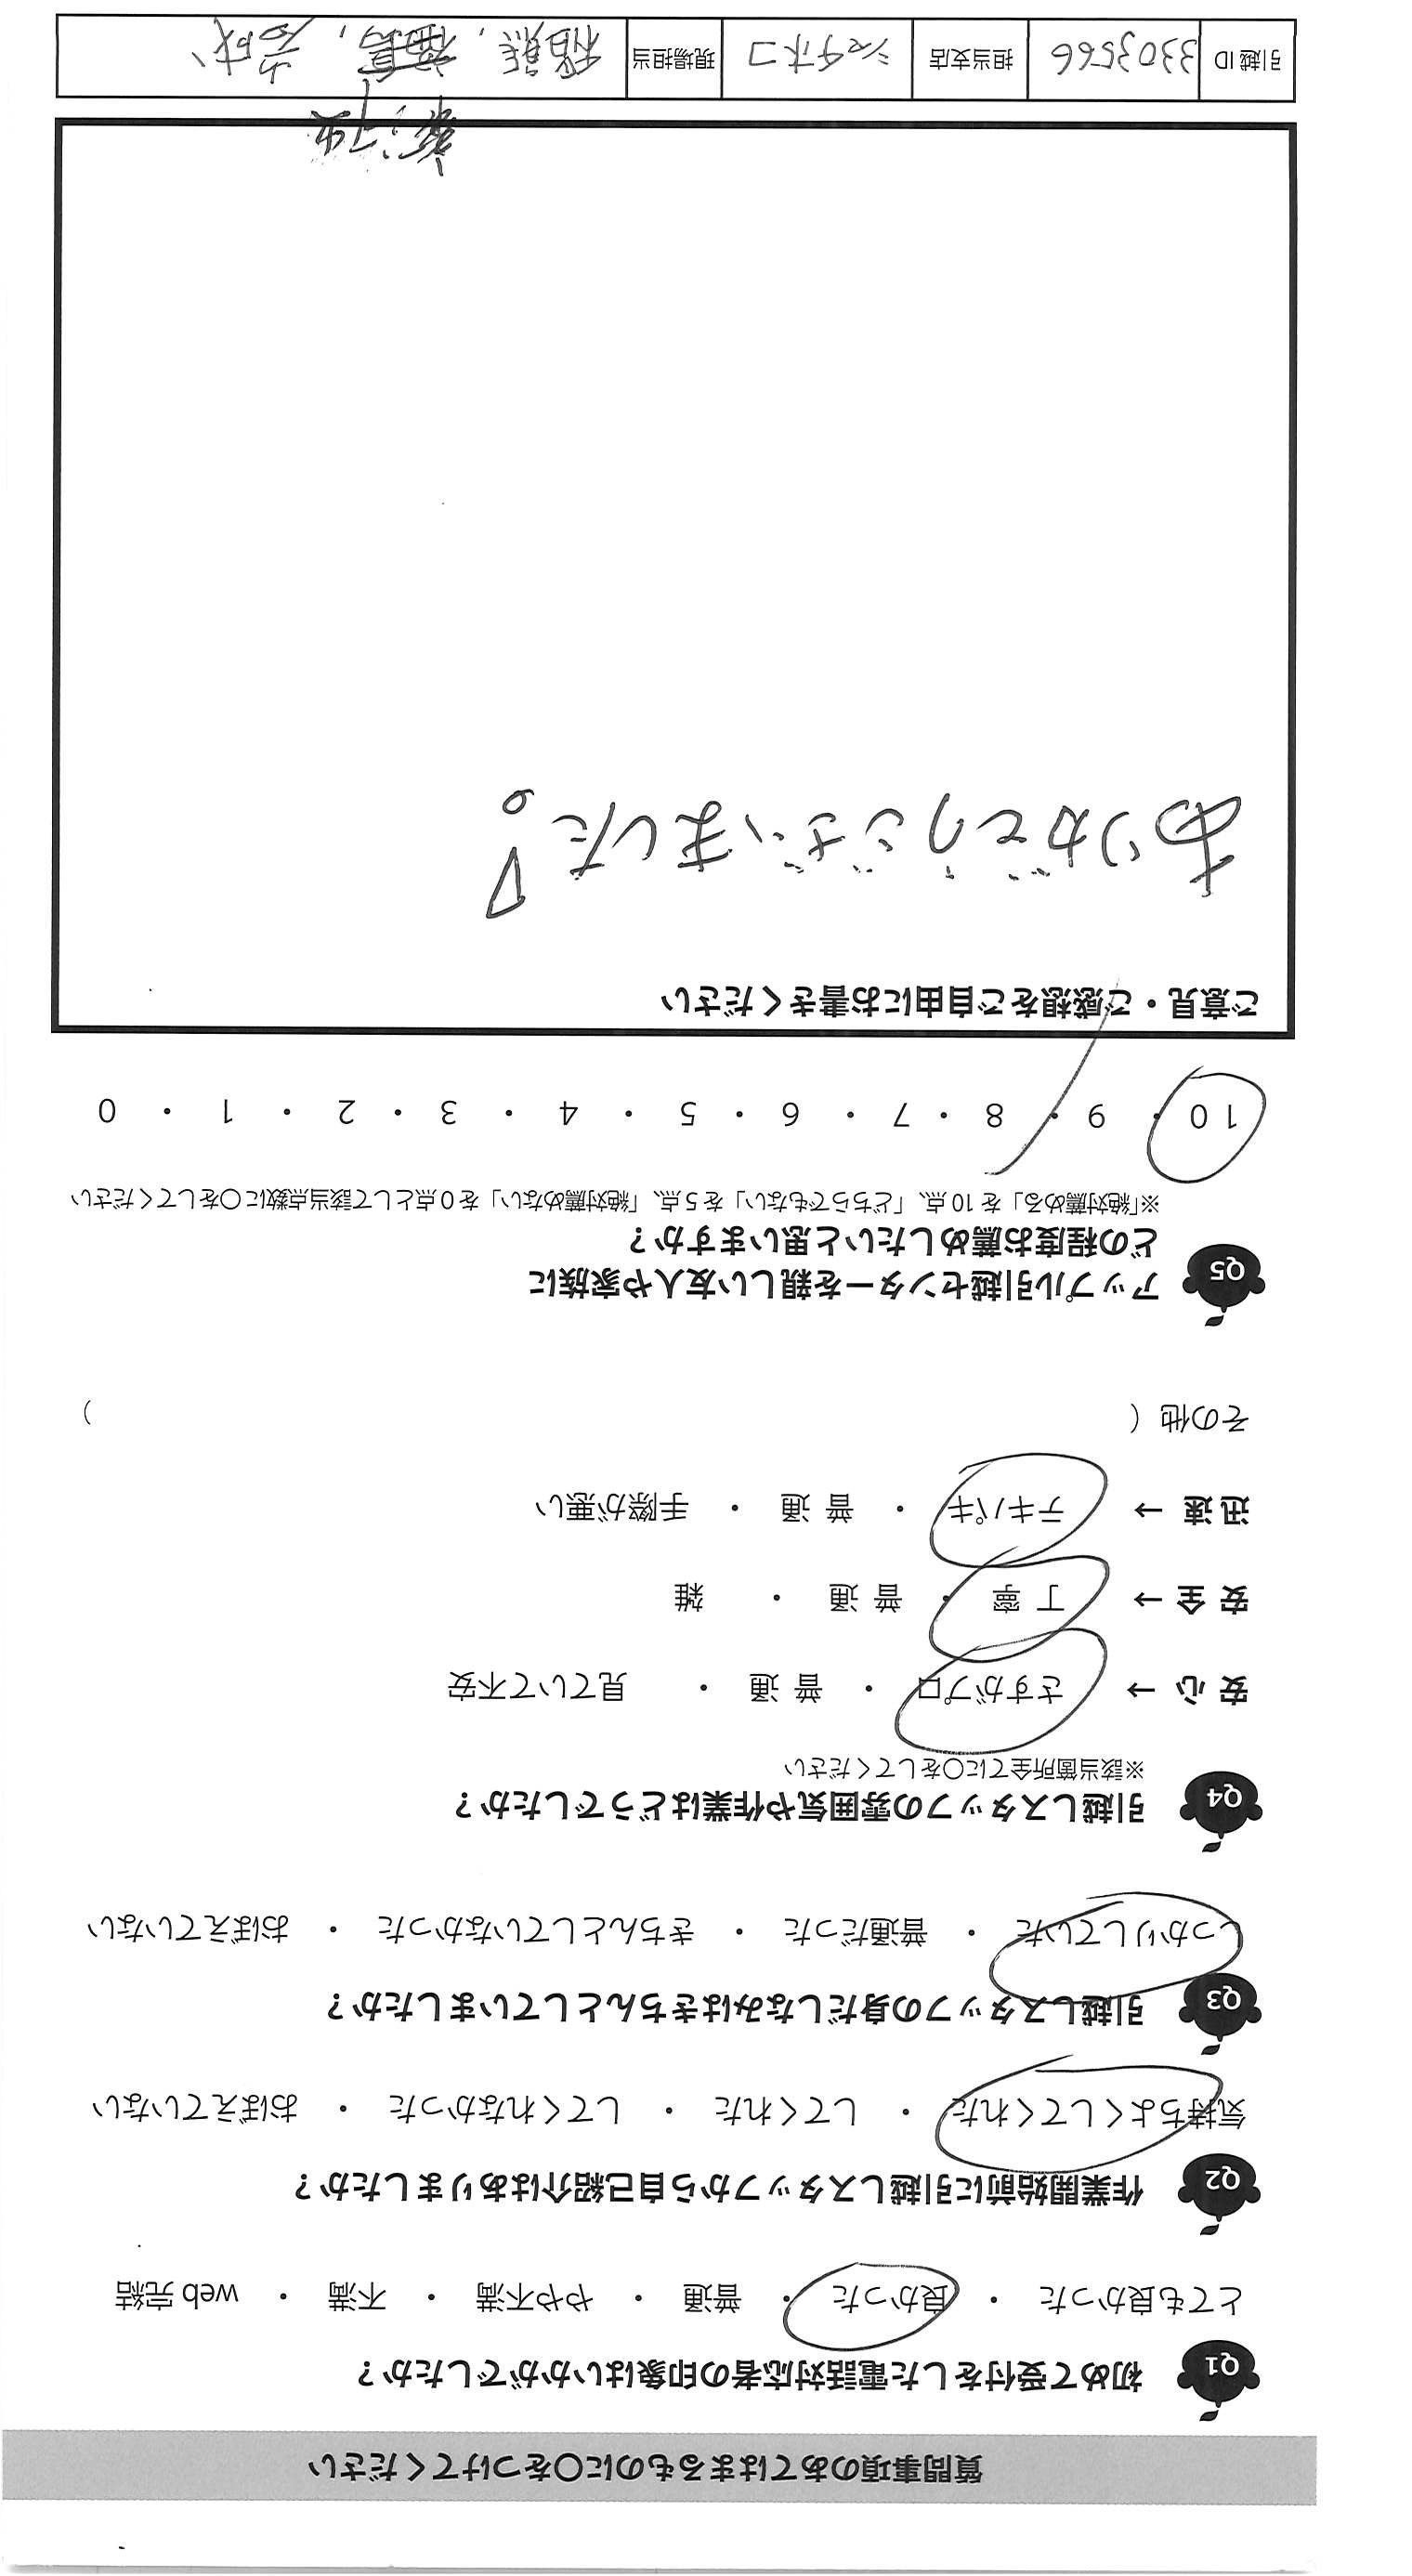 質問事項のあてはまるものに○をつけてください
Q1 初めて受付をした電話対応者の印象はいかがでしたか？
とても良かった ・ 良かった ・ 普通 ・ やや不満 ・ 不満 ・ web 完結
Q2 作業開始前に引越しスタッフから自己紹介はありましたか？
気持ちよくしてくれた ・ してくれた ・ してくれなかった ・ おぼえていない
Q3 引越しスタッフの身だしなみはきちんとしていましたか？
しっかりしていた ・ 普通だった ・ きちんとしていなかった ・ おぼえていない
Q4 引越しスタッフの雰囲気や作業はどうでしたか？
※該当箇所全てに○をしてください
安 心 → さすがプロ ・ 普 通 ・ 見ていて不安
安 全 → 丁 寧 ・ 普 通 ・ 雑
迅 速 → テキパキ ・ 普 通 ・ 手際が悪い
その他（ ）
Q5 アップル引越センターを親しい友人や家族に
どの程度お薦めしたいと思いますか？
※「絶対薦める」を 10 点、「どちらでもない」を 5 点、「絶対薦めない」を 0 点として該当点数に○をしてください
10 ・ 9 ・ 8 ・ 7 ・ 6 ・ 5 ・ 4 ・ 3 ・ 2 ・ 1 ・ 0
ご意見・ご感想をご自由にお書きください
ありがとうございました！
引越 ID 3303566 担当支店 シャチホコ 現場担当 稲熊,